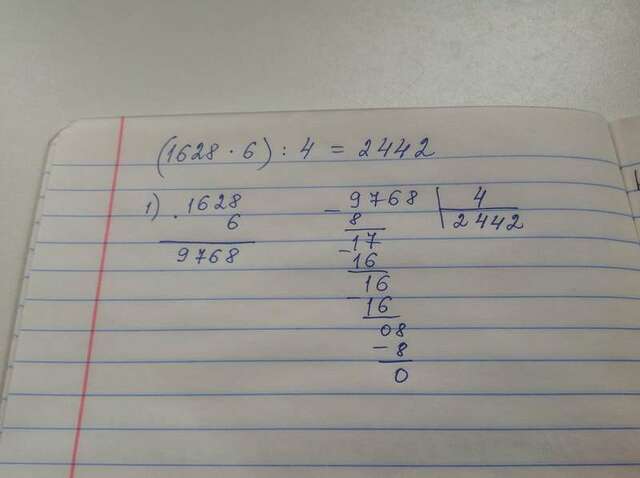 (1628 · 6) : 4 = 2442
1) 1628
· 6
9768
- 9768 | 4
8 2442
17
- 16
16
- 16
08
- 8
0